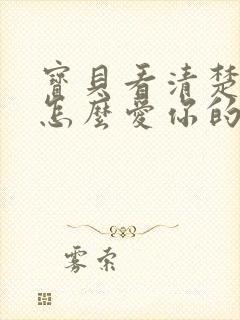 寶貝看清楚
怎麼愛你的
雾索